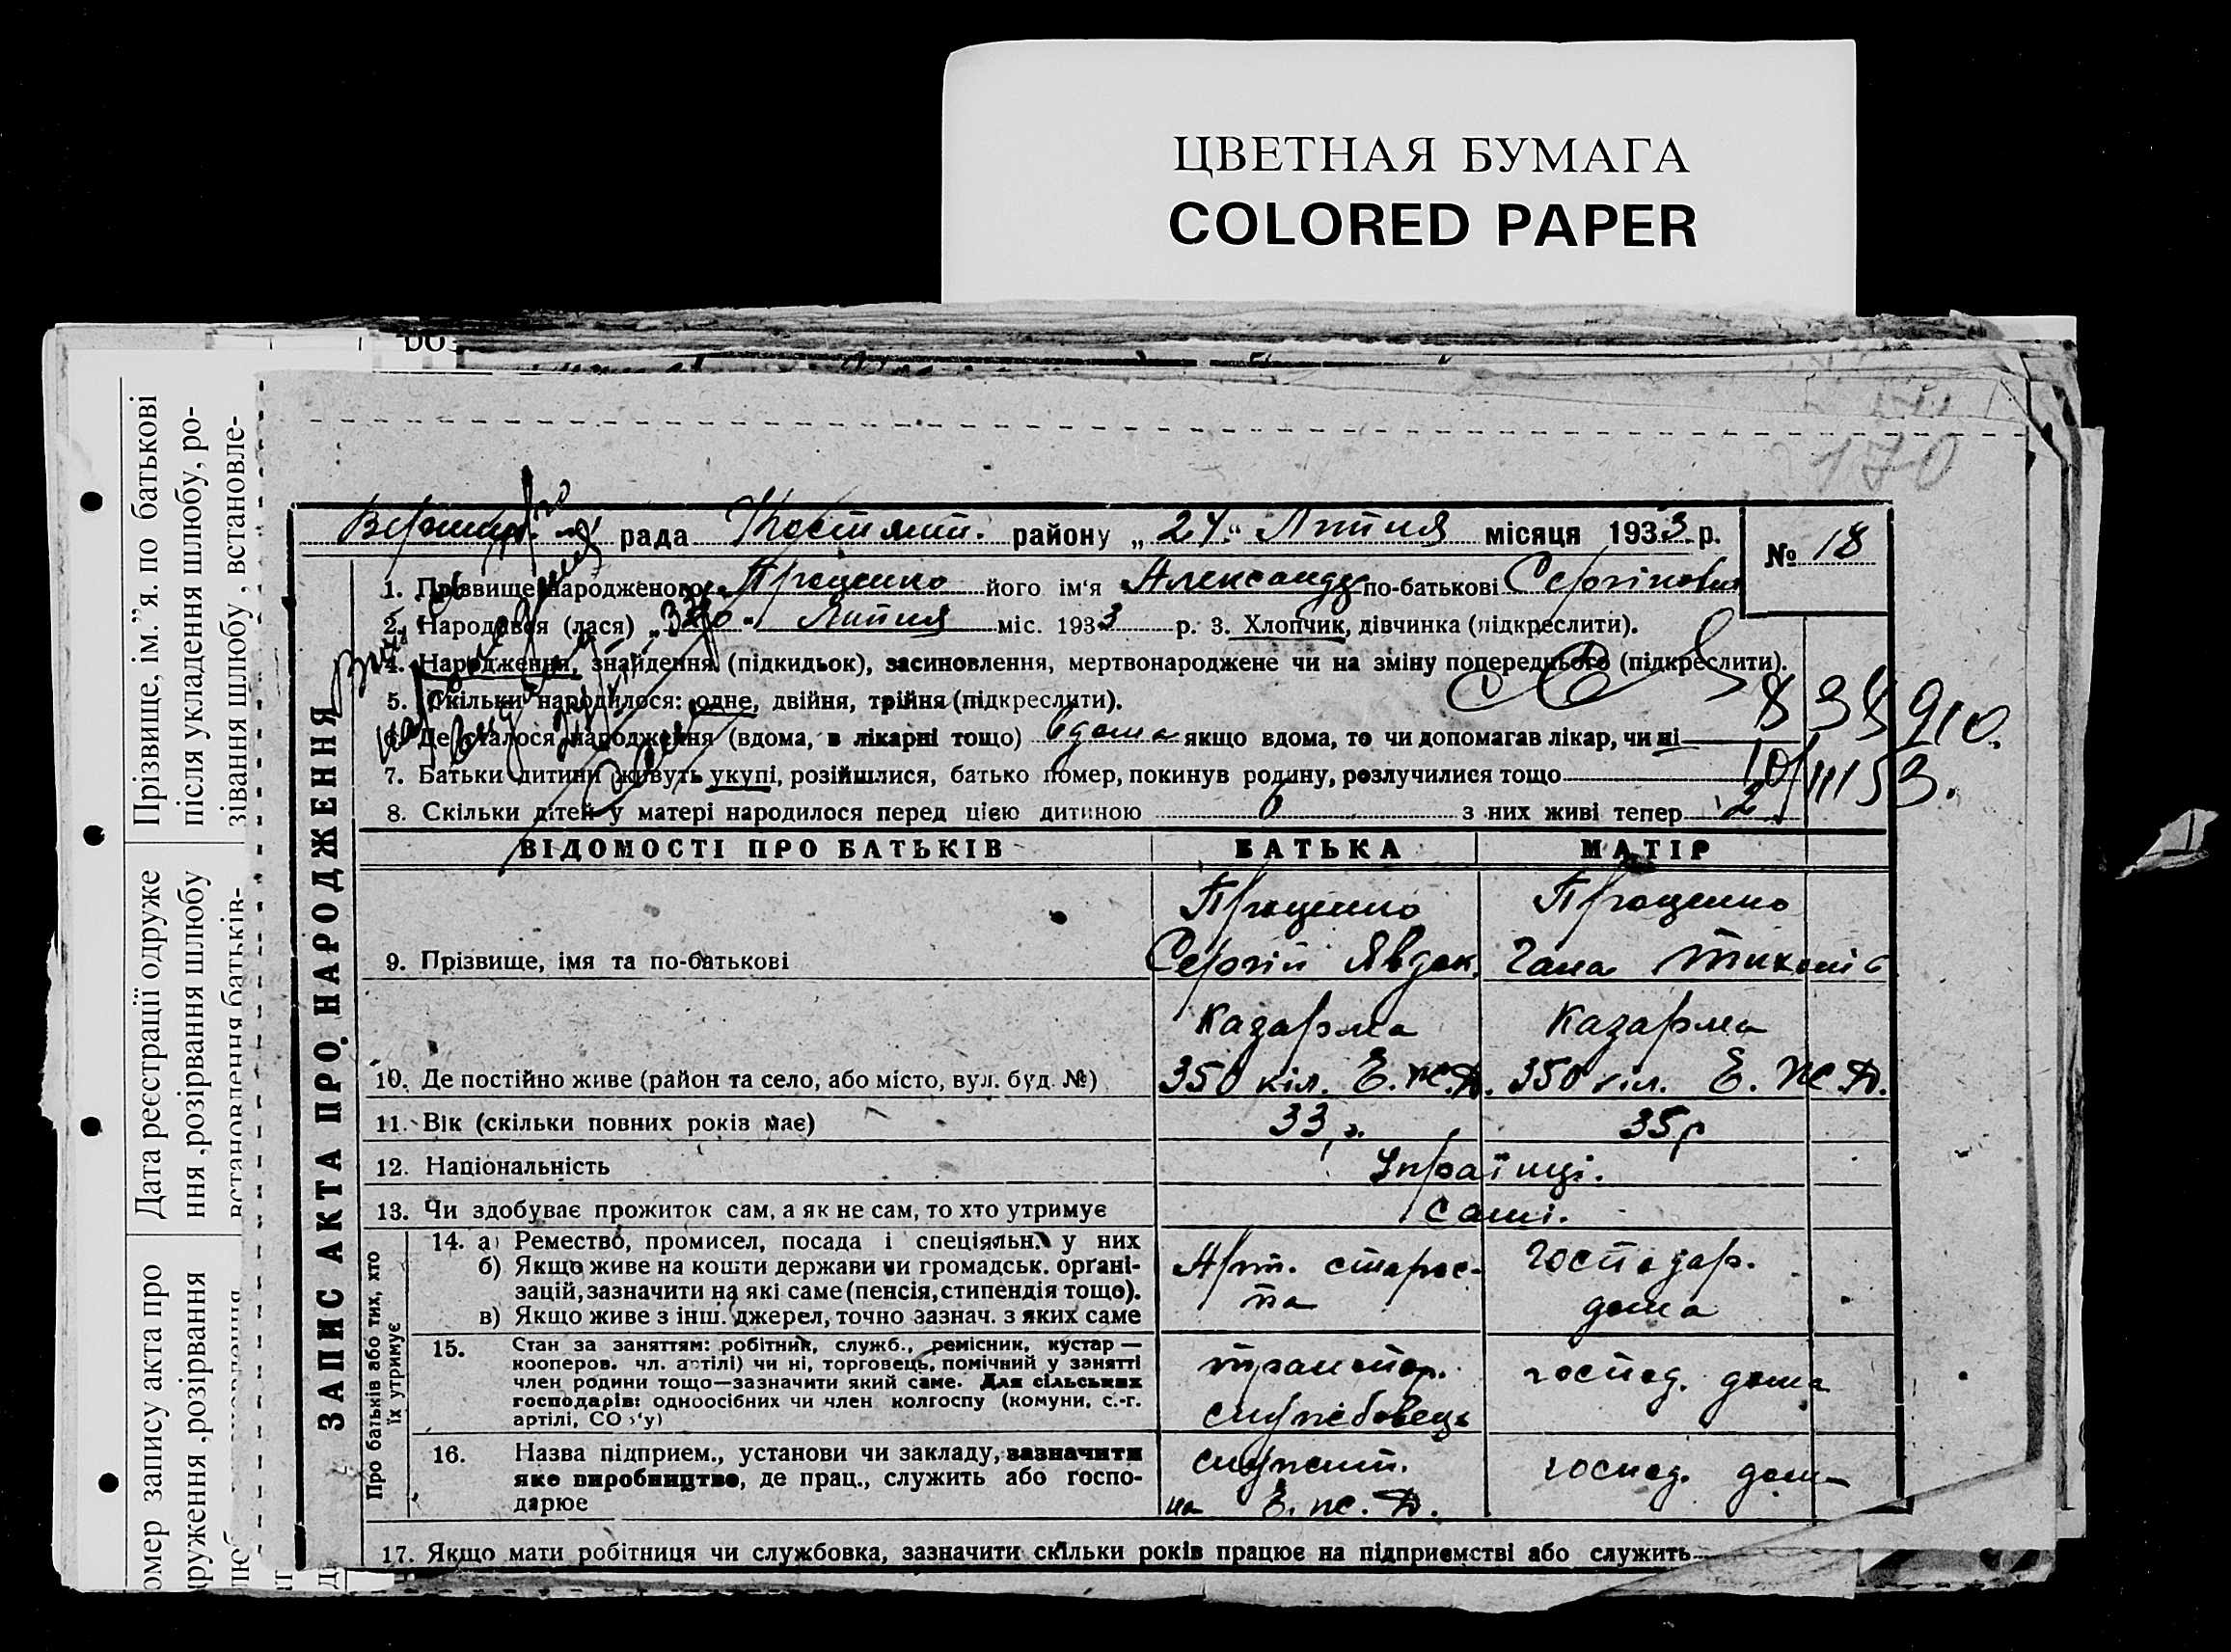 ЦВЕТНАЯ БУМАГА
COLORED PAPER
Прізвище, ім.”я. по батькові
після укладення шлюбу, ро-
зівання шлюбу , встановле-
Дата реєстрації одруже
ння ,розірвання шлюбу
встановлення батьків-
омер запису акта про
руження ,розірвання
170
рада района „24“ Липня місяця 1933 р.
№ 18
ЗАПИС АКТА ПРО НАРОДЖЕННЯ
1. Прізвище народженого Проценко його ім‘я Александр по-батькові Сергійович
2. Народився (лася) „ “ Липня міс. 1933 р. 3. Хлопчик, дівчинка (підкреслити).
4. Народження, знайдення (підкидьок), засиновлення, мертвонароджене чи на зміну попереднього (підкреслити).
5. Скільки народилося: одне, двійня, трійня (підкреслити).
6. Де сталося народження (вдома, в лікарні тощо) вдома якщо вдома, то чи допомагав лікар, чи ні
7. Батьки дитини живуть укупі, розійшлися, батько помер, покинув родину, розлучилися тощо
8. Скільки дітей у матері народилося перед цією дитиною 6 з них живі тепер 2
ВІДОМОСТІ ПРО БАТЬКІВ БАТЬКА МАТІР
Проценко Проценко
9. Прізвище, імя та по-батькові Сергій Явдок. Гана Тихонів
Казарма Казарма
10. Де постійно живе (район та село, або місто, вул. буд. №) 350 кіл. Е.Ж.Д. 350 кіл. Е. Ж.Д.
11. Вік (скільки повних років має) 33 р. 35 р
12. Національність Українці.
13. Чи здобуває прожиток сам, а як не сам, то хто утримує Самі.
Про батьків або тих, хто
їх утримує
14. а) Ремество, промисел, посада і спеціяльн. у них
б) Якщо живе на кошти держави чи громадськ. органі-
зацій, зазначити на які саме (пенсія, стипендія тощо).
в) Якщо живе з інш. джерел, точно зазнач. з яких саме
Арт. старос-
та
Господар.
дома
15. Стан за заняттям: робітник, служб., ремісник, кустар —
кооперов. чл. артілі) чи ні, торговець, помічний у занятті
член родини тощо—зазначити який саме. Для сільських
господарів: одноосібних чи член колгоспу (комуни, с.-г.
артілі, СОЗ'у)
транспор.
службовець
господ. дома
16. Назва підприєм., установи чи закладу, зазначити
яке виробництво, де прац., служить або госпо-
дарює
на Е. ж. Д.
господ. дома
17. Якщо мати робітниця чи службовка, зазначити скільки років працює на підприємстві або служить